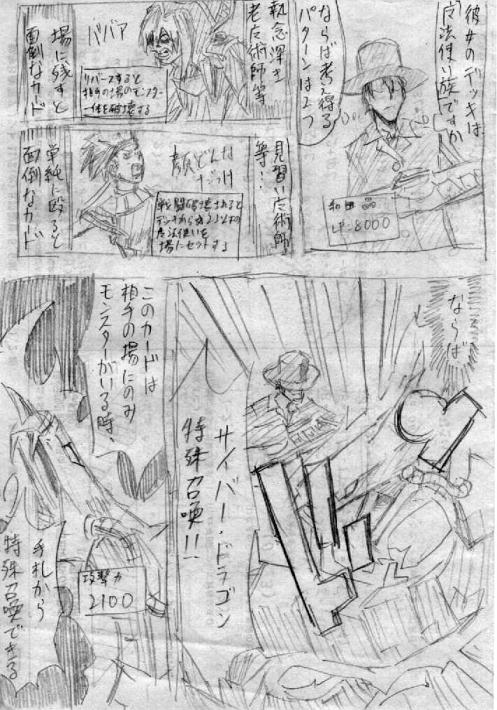 彼女のデッキは
魔法使い族ですか
ならば考え得る
パターンは2つ
和田
LP-8000
執念深き
老魔術師等
ババア
リバースすると
相手の場のモンスター
一体を破壊する
場に残すと
面倒なカード
見習い魔術師
等…
顔どんな
だっけ
戦闘破壊されると
デッキから
魔法使いを
場にセットする
単純に殴ると
面倒なカード
ならば
サイバー・ドラゴン
特殊召喚!!
このカードは
相手の場にのみ
モンスターがいる時、
攻撃力
2100
手札から
特殊召喚できる